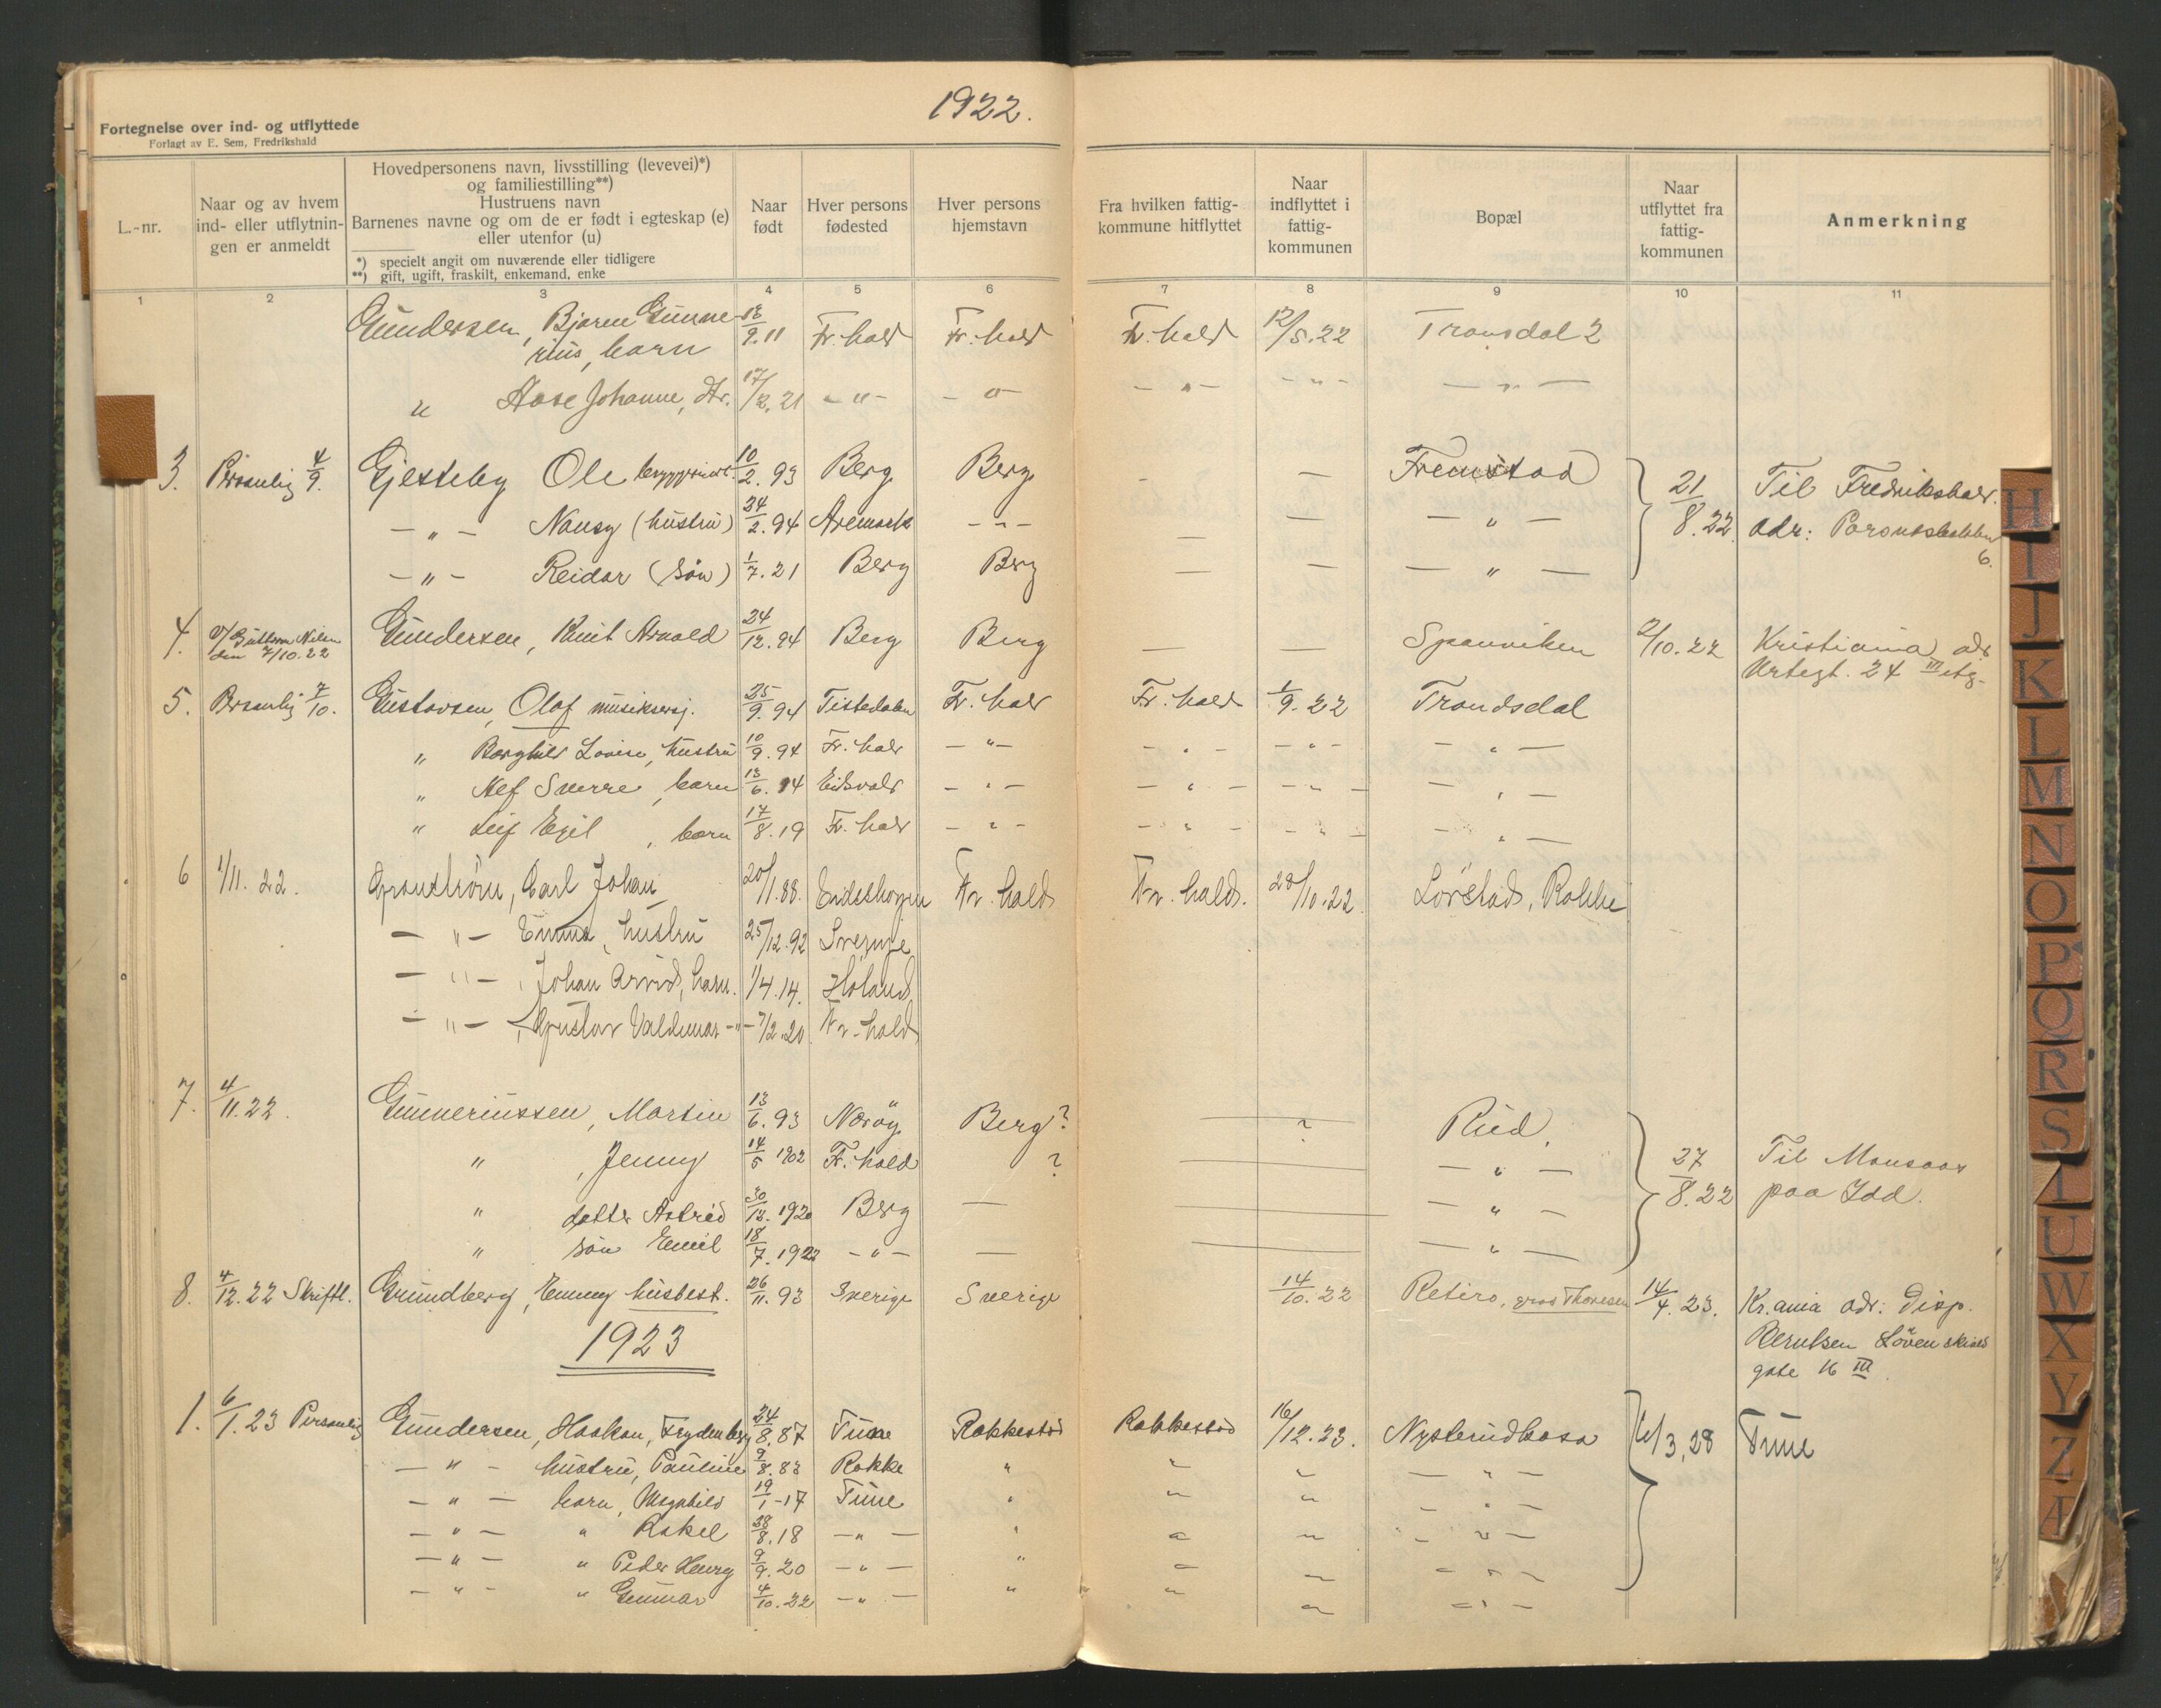 1922.
Fortegnelse over ind- og utflyttede
Forlagt av E. Sem, Fredrikshald
L.-nr.
Naar og av hvem
ind- eller utflytnin-
gen er anmeldt
Hovedpersonens navn, livsstilling (levevei)*)
og familiestilling**)
Hustruens navn
Barnenes navne og om de er født i egteskap (e)
eller utenfor (u)
*) specielt angit om nuværende eller tidligere
**) gift, ugift, fraskilt, enkemand, enke
Naar
født
Hver persons
fødested
Hver persons
hjemstavn
Fra hvilken fattig-
kommune hitflyttet
Naar
indflyttet i
fattig-
kommunen
Bopæl
Naar
utflyttet fra
fattig-
kommunen
Anmerkning
1 2 3 4 5 6 7 8 9 10 11
Gundersen, Bjarne Gunne- 9.11 Fr.hald Fr.hald Fr.hald 12/5.22 Tronsdal 2
rius, barn
" Aase Johanne, dtr. 17/2.21 - " - - " - - " - - " - - " -
3. Personlig 4/9. Gjesteby Ole 10/2.93 Berg Berg - — Fremstad 21/8.22 Til Fredrikshald.
- " - Nansy (hustru) 24/2.94 Aremark - " - — — - " - adr:
- " - Reidar (søn) 1/7.21 Berg Berg — — - " - 6.
4. v/ Guttorm Nilsen Gundersen, Knut Arnold 24/12.94 Berg Berg — — Sponviken 2/10.22 Kristiania adr
den 7/10.22 Urtegt. 24 III etg.
5. Personlig 7/10. Gustavsen, Olaf 25/9.94 Tistedalen Fr.hald Fr.hald 1/9.22 Trondsdal
" Borghild Lovise, hustru 10/9.94 Fr.hald - " - - " - - " - - " -
" Alf Sverre, barn 13/6.14 Eidsvold - " - - " - - " - - " -
" Leif Egil, barn 17/8.19 Fr.hald - " - - " - - " - - " -
6 1/11.22. Granstrøm, Carl Johan 20/11.88. Eidsskogen Fr.hald Fr.hald. 28/10.22 Lørstad, Rokke
- " - Emma, hustru 25/12.92 Sverige
- " - , Johan Arvid, barn. 1/4.14. Høland
- " - , Gustav Valdemar - " - 7/2.20 Fr.hald
7. 4/11.22. Gunneriussen, Martin 13/6.93 Nærøy Berg? ? Rud. 27/8.22 Til Monsaas
" , Jenny 14/5 1902 Fr.hald ? — - " - paa Idd.
" datter Astrid 30/12.1920 Berg — — - " -
" søn Emil 18/7.1922 - " - — — - " -
8. 4/12.22 Skriftl. Grundberg, Emmy husbest. 26/11.93 Sverige Sverige 14/10.22 Retiro, 14/4.23. Kr.ania adr: Disp.
Berntsen Løvenskiolds
gate 16 III.
1923
1. 6/1.23 Personlig Gundersen, Haakon, Frydenberg 24/8.87 Tune Rakkestad Rakkestad 16/12.23. 3,28 Tune
- " - hustru, Pauline 9/8.83 Rokke " " " - " -
- " - barn, Magnhild 19/1-17 Tune " " " - " -
- " - " Rakel 28/8.18 - " - " " " - " -
- " - " Peder Henry 9/9.20 - " - " " " - " -
- " - " Gunnar 4/10.22 - " - " " " - " -
H
I
J
K
L
M
N
O
P
Q
R
S
T
U
W
X
Y
Z
Æ